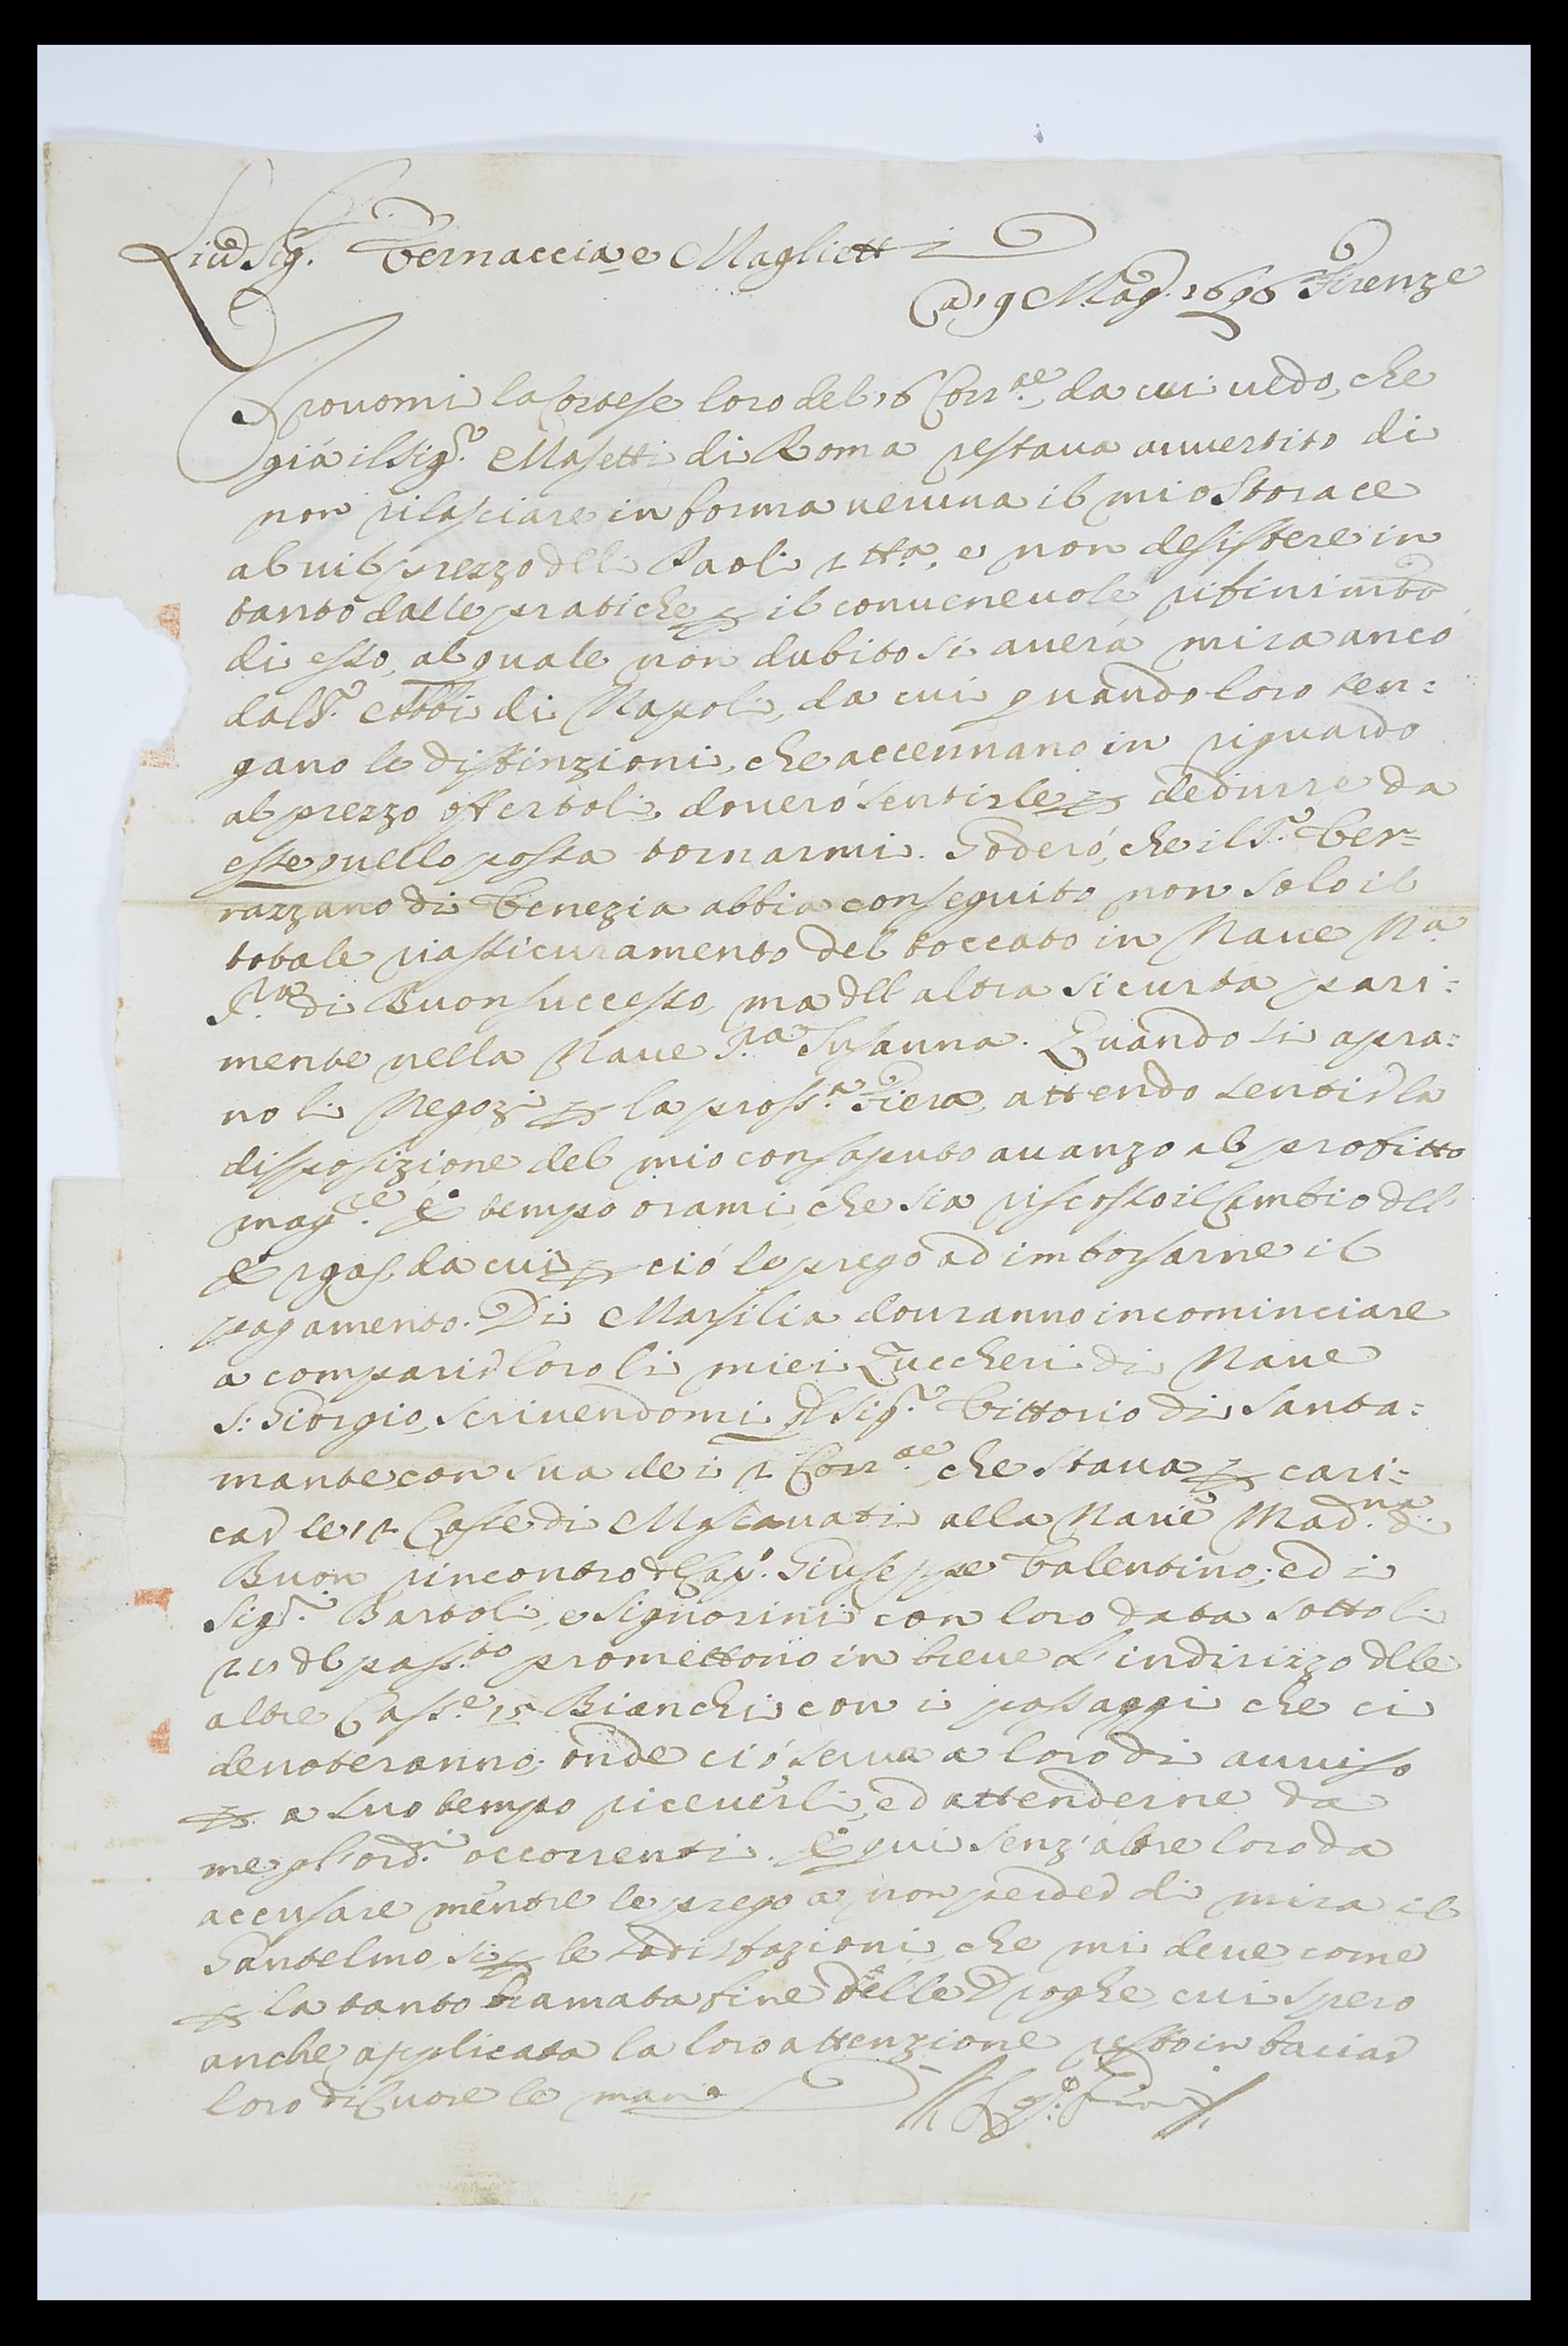 Livo Sig. Vernaccia e Magliett i
A 19 Mag. 1696 Firenze
Trovomi la Cortese loro del 16 Corr.te, da cui vedo, che
già il Sigr. Masetti di Roma restava avvertito di
non rilasciare in forma veruna il mio Storace
al vil prezzo deli Paoli 2 tta, e non desistere in
tanto dalle pratiche p il convenevole rifinimto
di esso, al quale non dubito si averà mira anco
dal Sr. di Napoli, da cui quando loro ten:
gano le distinzioni, che accennano in riguardo
al prezzo offertoli, doverò sentirle p dedurre da
esse quello possa tornarmi. Goderò, che il Sr. Ver=
razzano di Venezia abbia conseguito non solo il
totale riassicuramento del toccato in Nave Na
Sra di Buonsuccesso, ma dell altra sicurta pari:
mente nella Nave Sta Susanna. Quando si apra:
no li Negozi p la pross.a Fiera, attendo sentir la
disposizione del mio consaputo avanzo al profitto
magre. È tempo oramai, che sia riscosso il Cambio del
da cui p ciò le prego ad imborsarne il
pagamento. Di Marsilia dovranno incominciare
a comparir loro li miei Zuccheri di Nave
S: Giorgio, scrivendomi il Sigr. Vittorio di Santa:
mante con sua dei 2 Corr.te che stava p cari:
car le 12 Casse di Moscavati alla Nave Mad.na di
Buon rincontro Cap. Giuseppe Valentino; ed i
Sigr. Bartoli, e Signorini con loro data sotto li
25 dl pass.to promettono in breve l'indirizzo dlle
altre Casse 15 Bianchi con i passaggi che ci
denoteranno; onde ciò serva a loro di avviso
p a suo tempo riceverli, ed attenderne da
me gl'ordni occorrenti. E qui senz'altre loro da
accusare mentre le prego a non perder di mira il
Gantelmo, sì p le sodisfazioni, che mi deve, come
p la tanto bramata fine delle Droghe, cui spero
anche applicata la loro attenzione resto in baciar
loro di Cuore le mani